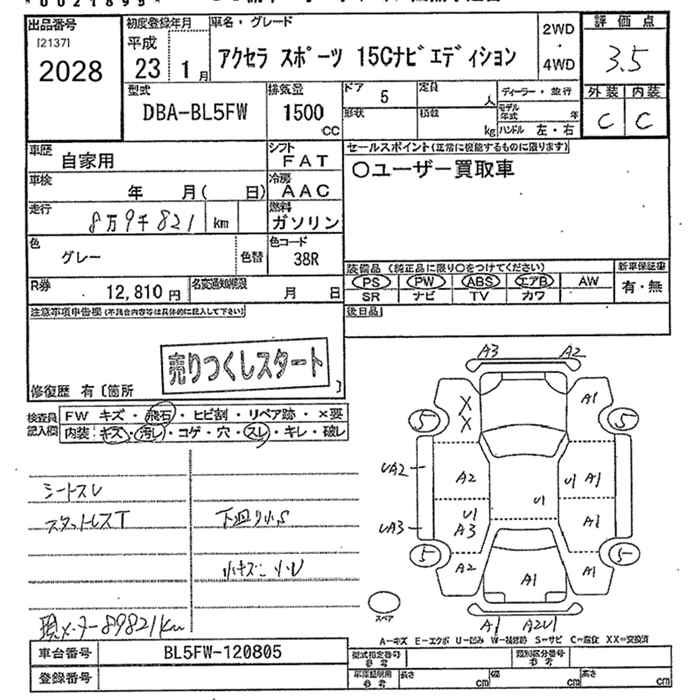 *0021895*
出品番号 初度登録年月 車名・グレード 評価点
[2137] 平成 2WD
2028 23 1月 アクセラ スポーツ 15Cナビエディション ・ 3.5
4WD
型式 排気量 ドア 5 定員 人 ディーラー・並行 外装 内装
DBA-BL5FW 1500 CC 形状 積数 kg モデル年式 年 C C
ハンドル 左・右
車歴 自家用 シフト FAT セールスポイント(正常に機能するものに限ります)
車検 年 月( 日) 冷房 AAC 〇ユーザー買取車
走行 8万9千821 km 燃料 ガソリン
色 グレー 色替 色コード 38R
装備品 (純正品に限り〇をつけてください) 新車保証書
R券 12,810円 名変通知期限 月 日 PS PW ABS エアB AW 有・無
SR ナビ TV カワ
注意事項申告欄(不具合内容等は具体的に記入して下さい) 後日品
売りつくしスタート
修復歴 有 〔箇所 〕
検査員 FW キズ・飛石・ヒビ割・リペア跡・×要
記入欄 内装:キズ・汚レ・コゲ・穴・スレ・キレ・破レ
シートスレ
スタットレスT 下廻り小S
小キズ 小U
現メーター89821km
A3 A2
X A1
X
5 5
UA2 A2 U1 A1
U1 U1
UA3 A3 A1
5 5
A2 A1 A1
スペア A1 A2U1
A−キズ E−エクボ U−凹み W−補修跡 S−サビ C−腐食 XX−交換済
車台番号 BL5FW-120805 型式指定番号 参考 類別区分番号 参考
登録番号 車庫証明用 参考 長さ cm 幅 cm 高さ cm